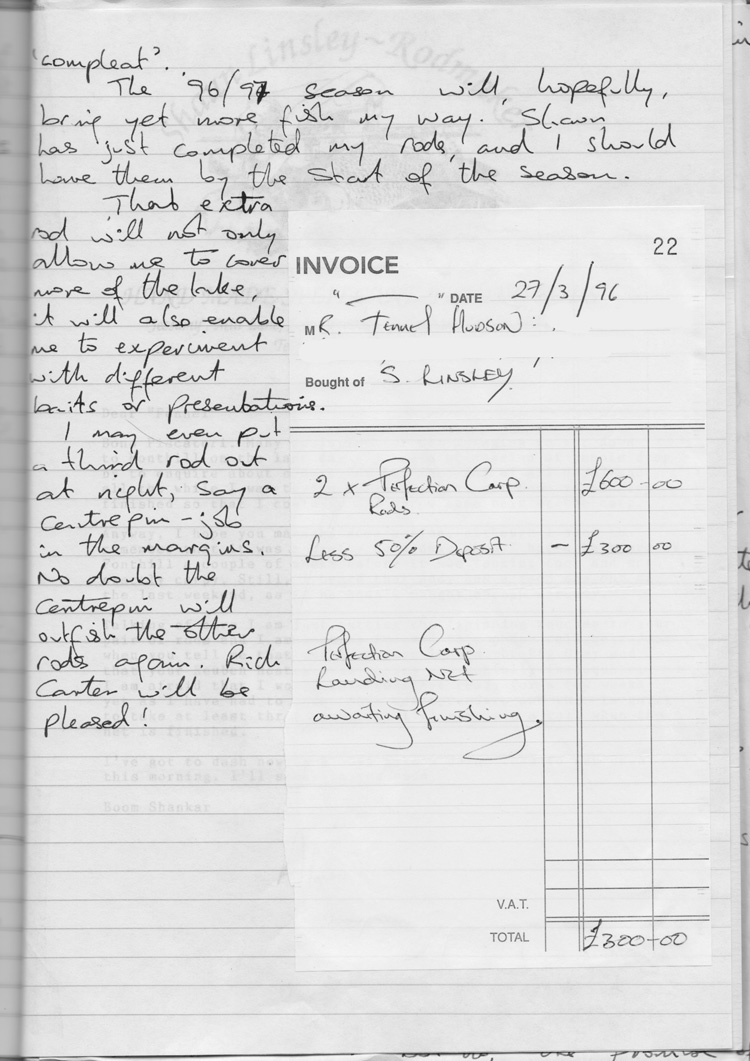 'compleat'.
The '96/97 season will, hopefully,
bring yet more fish my way. Shaun
has just completed my rods, and I should
have them by the start of the season.
That extra
rod will not only
allow me to cover
more of the lake,
it will also enable
me to experiment
with different
baits or presentations.
I may even put
a third rod out
at night, say a
centrepin-job
in the margins.
No doubt the
centrepin will
outfish the other
rods again. Rich
Carter will be
pleased!
22
INVOICE
" " DATE 27/3/96
MR. Fennel Hudson:.
Bought of 'S. LINSLEY'
2 x Perfection Carp £600-00
Rods.
Less 50% Deposit - £300 00
Perfection Carp
Landing Net
awaiting finishing.
V.A.T.
TOTAL £300-00
I've got to dash now
this morning. I'll
Boom Shankar
Shaun Linsley~Rodmaker